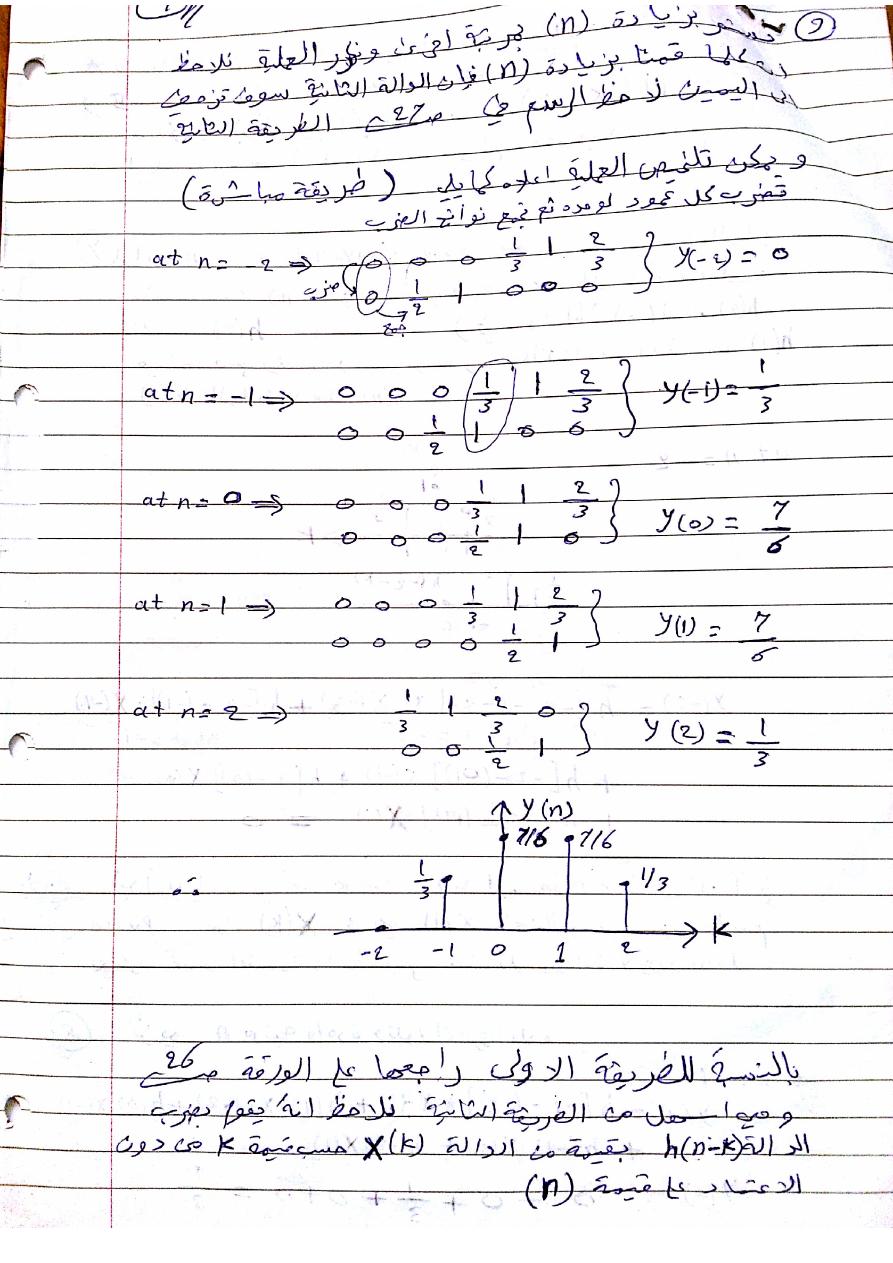 (9) نستمر بزيادة (n) بمرتبة اخرى ونكرر العملية نلاحظ
انه كلما قمنا بزيادة (n) فإن الدالة الثانية سوف تزحف
الى اليمين لاحظ الرسم في ص27 الطريقة الثانية
و يمكن تلخيص العملية اعلاه كمايلي (طريقة مباشرة)
نضرب كل عمود لوحده ثم نجمع نواتج الضرب
at n = -2 ⇒ 0 0 0 1/3 1 2/3 } y(-2) = 0
ضرب 0 1/2 1 0 0 0
جمع
at n = -1 ⇒ 0 0 0 1/3 1 2/3 } y(-1) = 1/3
0 0 1/2 1 0 0
at n = 0 ⇒ 0 0 0 1/3 1 2/3 } y(0) = 7/6
0 0 0 1/2 1 0
at n = 1 ⇒ 0 0 0 1/3 1 2/3 } y(1) = 7/6
0 0 0 0 1/2 1
at n = 2 ⇒ 1/3 1 2/3 0 } y(2) = 1/3
0 0 1/2 1
y(n)
7/6 7/6
∴ 1/3 1/3
-2 -1 0 1 2 K
بالنسبة للطريقة الاولى راجعها على الورقة ص26
وهي اسهل من الطريقة الثانية نلاحظ انه يقوم بضرب
الدالة h(n-k) بقيمة من الدالة X(k) حسب قيمة k من دون
الاعتماد على قيمة (n)